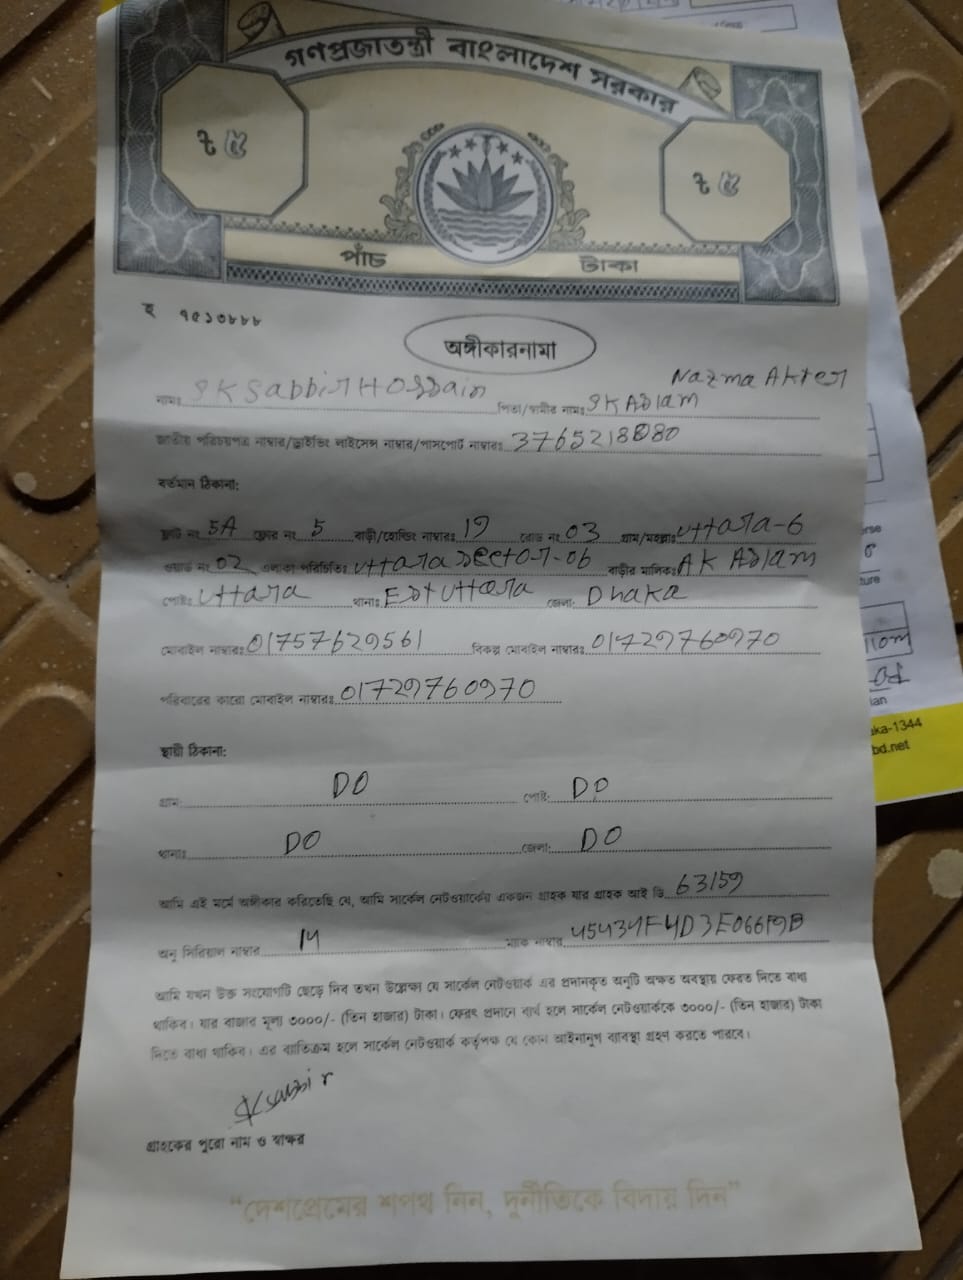 গণপ্রজাতন্ত্রী বাংলাদেশ সরকার
৳ ৫ ৳ ৫
পাঁচ টাকা
হ ৭৫১৩৮৮৮
অঙ্গীকারনামা
Nazma Akter
নামঃ SK Sabbir Hossain পিতা/স্বামীর নামঃ SK Aslam
জাতীয় পরিচয়পত্র নাম্বার/ড্রাইভিং লাইসেন্স নাম্বার/পাসপোর্ট নাম্বারঃ 3765218880
বর্তমান ঠিকানা:
ফ্লাট নং 5A ফ্লোর নং 5 বাড়ী/হোল্ডিং নাম্বারঃ 19 রোড নং 03 গ্রাম/মহল্লাঃ Uttara-6
ওয়ার্ড নং 02 এলাকা পরিচিতিঃ Uttara Sector-06 বাড়ীর মালিকঃ AK Aslam
পোষ্টঃ Uttara থানাঃ Est Uttara জেলা: Dhaka
মোবাইল নাম্বারঃ 01757629561 বিকল্প মোবাইল নাম্বারঃ 01729760970
পরিবারের কারো মোবাইল নাম্বারঃ 01729760970
স্থায়ী ঠিকানা:
গ্রাম: DO পোষ্ট: DO
থানাঃ DO জেলা: DO
আমি এই মর্মে অঙ্গীকার করিতেছি যে, আমি সার্কেল নেটওয়ার্কের একজন গ্রাহক যার গ্রাহক আই ডি 63159
অনু সিরিয়াল নাম্বার 14 ম্যাক নাম্বার
আমি যখন উক্ত সংযোগটি ছেড়ে দিব তখন উল্লেক্ষা যে সার্কেল নেটওয়ার্ক এর প্রদানকৃত অনুটি অক্ষত অবস্থায় ফেরত দিতে বাধ্য
থাকিব। যার বাজার মূল্য ৩০০০/- (তিন হাজার) টাকা। ফেরৎ প্রদানে ব্যর্থ হলে সার্কেল নেটওয়ার্ককে ৩০০০/- (তিন হাজার) টাকা
দিতে বাধ্য থাকিব। এর ব্যতিক্রম হলে সার্কেল নেটওয়ার্ক কর্তৃপক্ষ যে কোন আইনানুগ ব্যাবস্থা গ্রহণ করতে পারবে।
SK Sabbir
গ্রাহকের পুরো নাম ও স্বাক্ষর
“দেশপ্রেমের শপথ নিন, দুর্নীতিকে বিদায় দিন”
aka-1344
bd.net